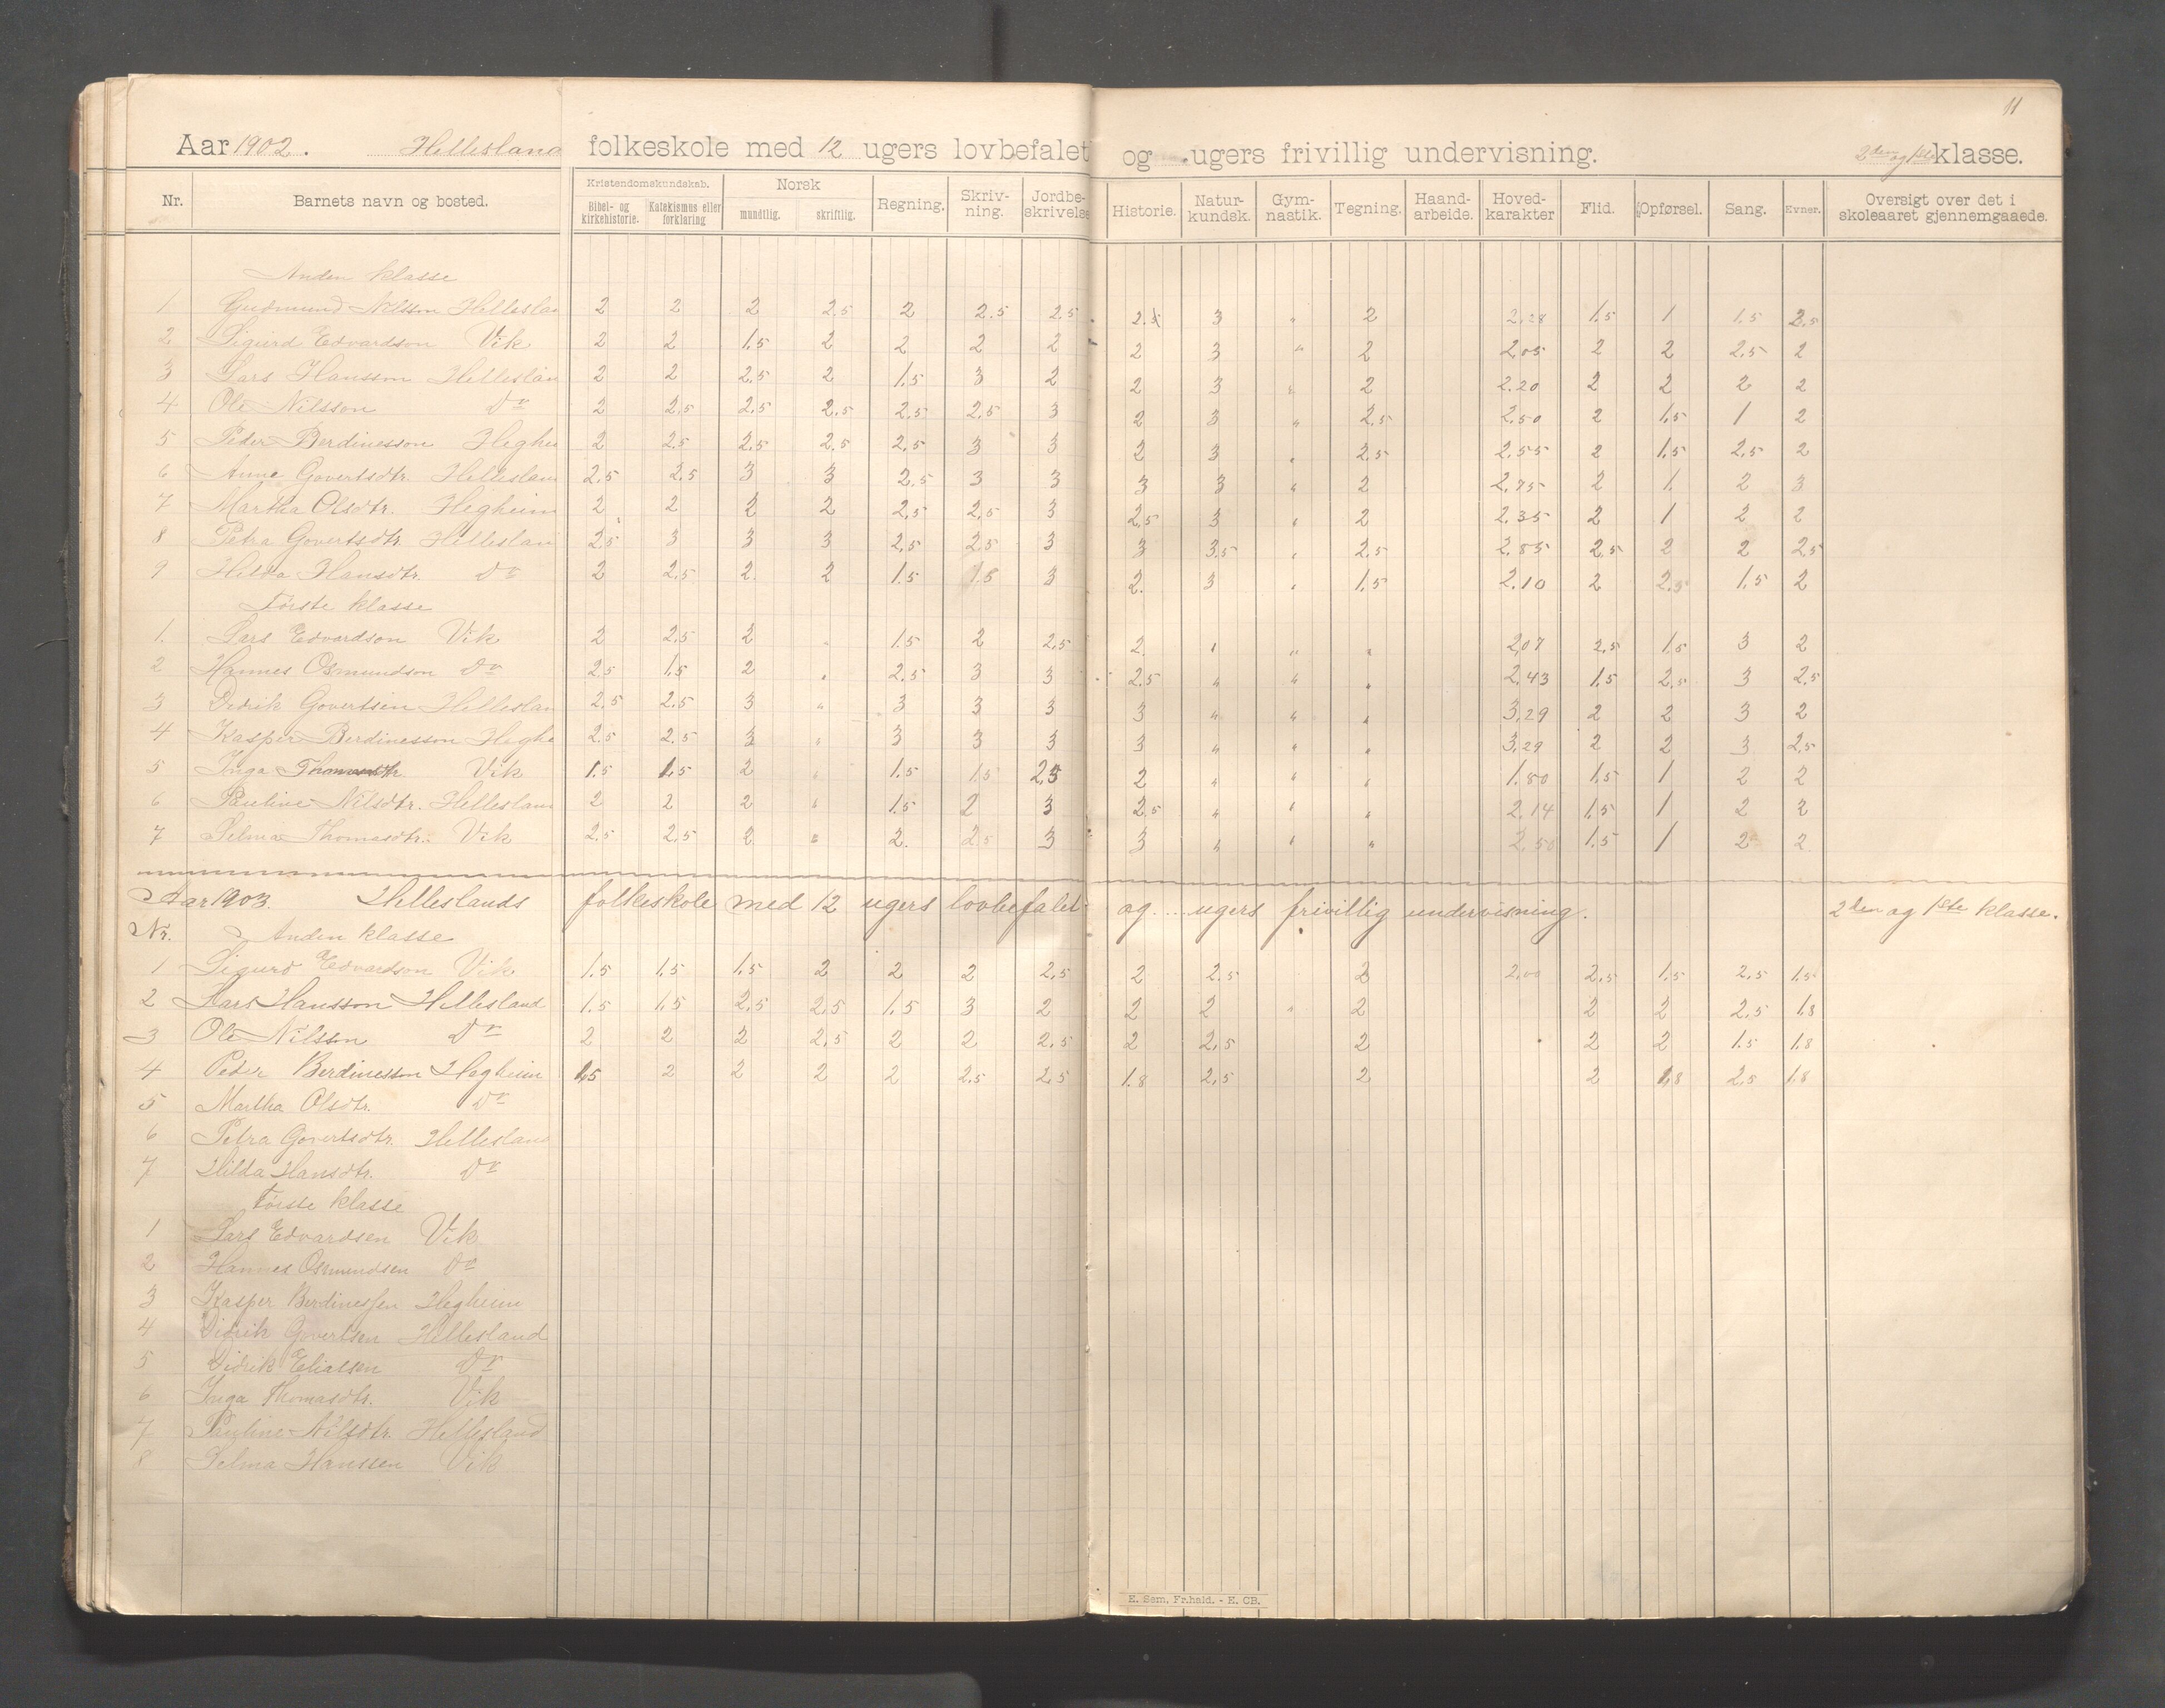 11
Aar 1902. Hellesland folkeskole med 12 ugers lovbefalet og ugers frivillig undervisning. 2den og 1ste klasse.
Nr. Barnets navn og bosted. Kristendomskundskab. Bibel- og kirkehistorie. Katekismus eller forklaring Norsk mundtlig. skriftlig. Regning. Skriv-ning. Jordbe-skrivelse Historie. Natur-kundsk. Gym-nastik. Tegning. Haand-arbeide. Hoved-karakter Flid. Opførsel. Sang. Evner. Oversigt over det i skoleaaret gjennemgaaede.
Anden klasse
1 Gudmund Nilsson Helleslan 2 2 2 2.5 2 2.5 2.5 3 " 2 2.28 1.5 1 1.5 2.5
2 Sigurd Edvardson Vik 2 2 1.5 2 2 2 2 2 3 " 2 2.05 2 2 2.5 2
3 Lars Hansson Helleslan 2 2 2.5 2 1.5 3 2 2 3 " 2 2.20 2 2 2 2
4 Ole Nilsson Do 2 2.5 2.5 2.5 2.5 2.5 3 2 3 " 2.5 2.50 2 1.5 1 2
5 Peder Berdinesson Heghei 2 2.5 2.5 2.5 2.5 3 3 2 3 " 2.5 2.55 2 1.5 2.5 2
6 Anna Govertsdtr. Helleslan 2.5 2.5 3 3 2.5 3 3 3 3 " 2 2.75 2 1. 2 3
7 Martha Olsdtr. Hegheim 2 2 2 2 2.5 2.5 3 2.5 3 " 2 2.35 2 1 2 2
8 Petra Govertsdtr. Helleslan 2.5 3 3 3 2.5 2.5 3 3 3.5 " 2.5 2.85 2.5 2 2 2.5
9 Hilda Hansdtr. Do 2 2.5 2. 2 1.5 1.5 3 2. 3 " 1.5 2.10 2 2.5 1.5 2
Første klasse
1. Lars Edvardson Vik 2 2.5 2 " 1.5 2 2.5 2. " " " 2.07 2.5 1.5 3 2
2 Hannes Osmundson Do 2.5 1.5 2 " 2.5 3 3 2.5 " " " 2.43 1.5 2.5 3 2.5
3 Didrik Govertsen Helleslan 2.5 2.5 3 " 3 3 3 3 " " " 3.29 2 2 3 2
4 Kasper Berdinesson Heghe 2.5 2.5 3 " 3 3 3 3 " " " 3.29 2 2 3 2.5
5 Inga Thomasdtr Vik 1.5 1.5 2 " 1.5 1.5 2.5 2 " " " 1.80 1.5 1 2 2
6 Pauline Nilsdtr. Hellesland 2 2 2 " 1.5 2 3 2.5 " " " 2.14 1.5 1 2 2
7 Selma Thomasdtr. Vik 2.5 2.5 2 " 2. 2.5 3 3 " " " 2.50 1.5 1 2 2
Aar 1903. Helleslands folkeskole med 12 ugers lovbefalet og ... ugers frivillig undervisning. 2den og 1ste klasse.
Nr. Anden klasse
1 Sigurd Edvardson Vik 1.5 1.5 1.5 2 2 2 2.5 2 2.5 2 2.00 2.5 1.5 2.5 1.5
2 Lars Hansson Hellesland 1.5 1.5 2.5 2.5 1.5 3 2 2 2 " 2 2 2 2.5 1.8
3 Ole Nilsson Do 2 2 2 2.5 2 2 2.5 2 2.5 2 2 2 1.5 1.8
4 Peder Berdinesson Hegheim 1.5 2 2 2 2 2.5 2.5 1.8 2.5 2 2 1.8 2.5 1.8
5 Martha Olsdtr. Do
6 Petra Govertsdtr. Hellesland
7 Hilda Hansdtr. Do
Første klasse
1 Lars Edvardsen Vik
2 Hannes Osmundsen Do
3 Kasper Berdinessen Hegheim
4 Didrik Govertsen Hellesland
5 Didrik Eliassen Do
6 Inga Thomasdtr. Vik
7 Pauline Nilsdtr. Hellesland
8 Selma Hanssen Vik
E. Sem, Fr.hald. - E. CB.